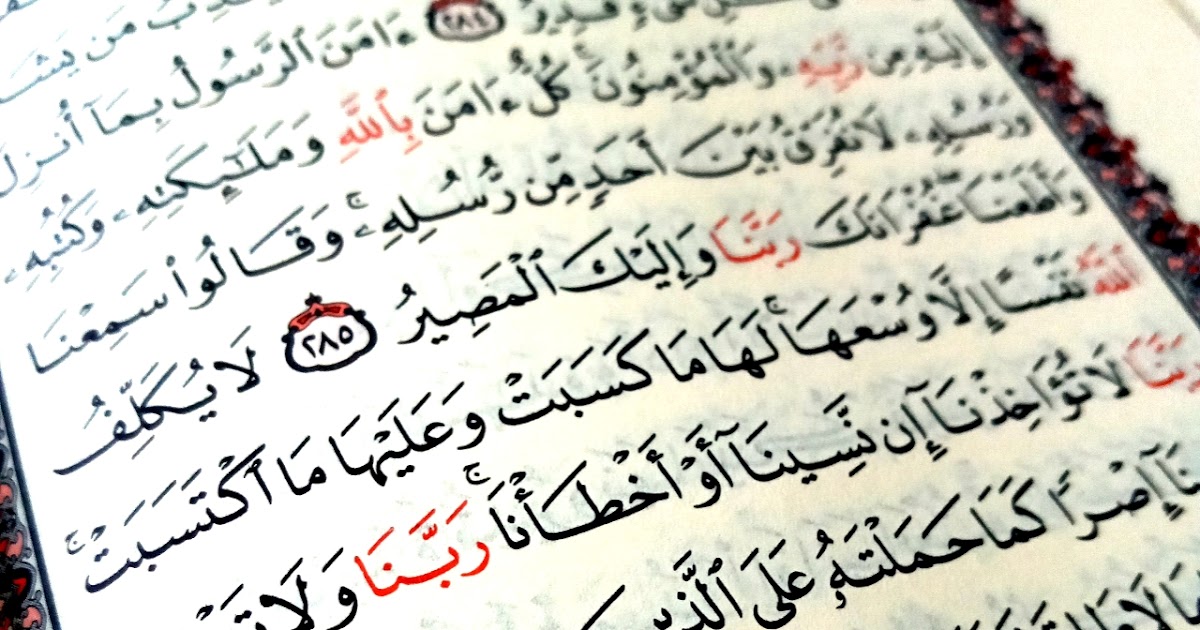 مَن يَشَ
شَىْءٍ قَدِيرٌ ٢٨٤ ءَامَنَ ٱلرَّسُولُ بِمَآ أُنزِلَ
إِلَيْهِ مِن رَّبِّهِۦ وَٱلْمُؤْمِنُونَ ۚ كُلٌّ ءَامَنَ بِٱللَّهِ وَمَلَٰٓئِكَتِهِۦ وَكُتُبِهِۦ
وَرُسُلِهِۦ لَا نُفَرِّقُ بَيْنَ أَحَدٍ مِّن رُّسُلِهِۦ ۚ وَقَالُوا۟ سَمِعْنَا
وَأَطَعْنَا ۖ غُفْرَانَكَ رَبَّنَا وَإِلَيْكَ ٱلْمَصِيرُ ٢٨٥ لَا يُكَلِّفُ
ٱللَّهُ نَفْسًا إِلَّا وُسْعَهَا ۚ لَهَا مَا كَسَبَتْ وَعَلَيْهَا مَا ٱكْتَسَبَتْ ۗ
رَبَّنَا لَا تُؤَاخِذْنَآ إِن نَّسِينَآ أَوْ أَخْطَأْنَا ۚ رَبَّنَا وَلَا تَ
نَآ إِصْرًا كَمَا حَمَلْتَهُۥ عَلَى ٱلَّذِينَ